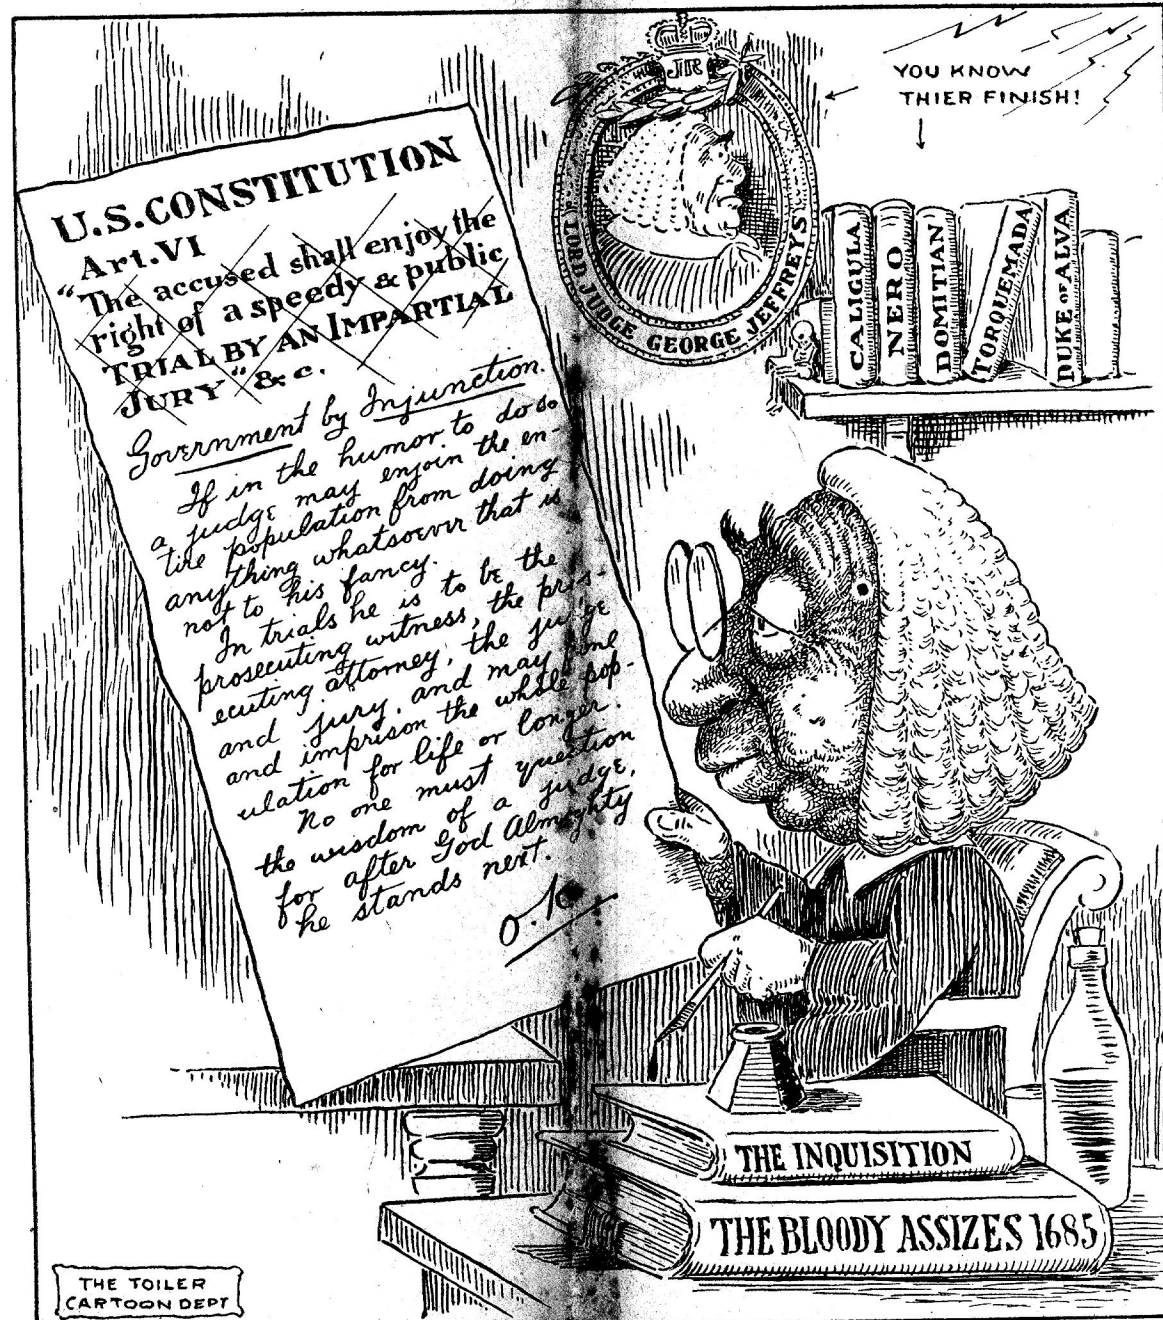 U.S. CONSTITUTION
Art. VI
"The accused shall enjoy the
right of a speedy & public
TRIAL BY AN IMPARTIAL
JURY" & c.
Government by Injunction.
If in the humor to do so
a judge may enjoin the en-
tire population from doing
anything whatsoever that is
not to his fancy.
In trials he is to be the
prosecuting witness, the pros-
ecuting attorney, the judge
and jury, and may fine
and imprison the whole pop-
ulation for life or longer.
No one must question
the wisdom of a judge,
for after God Almighty
he stands next.
O.K.
JR
LORD JUDGE GEORGE JEFFREYS
YOU KNOW
THIER FINISH!
CALIGULA
NERO
DOMITIAN
TORQUEMADA
DUKE OF ALVA
THE INQUISITION
THE BLOODY ASSIZES 1685
THE TOILER
CARTOON DEPT